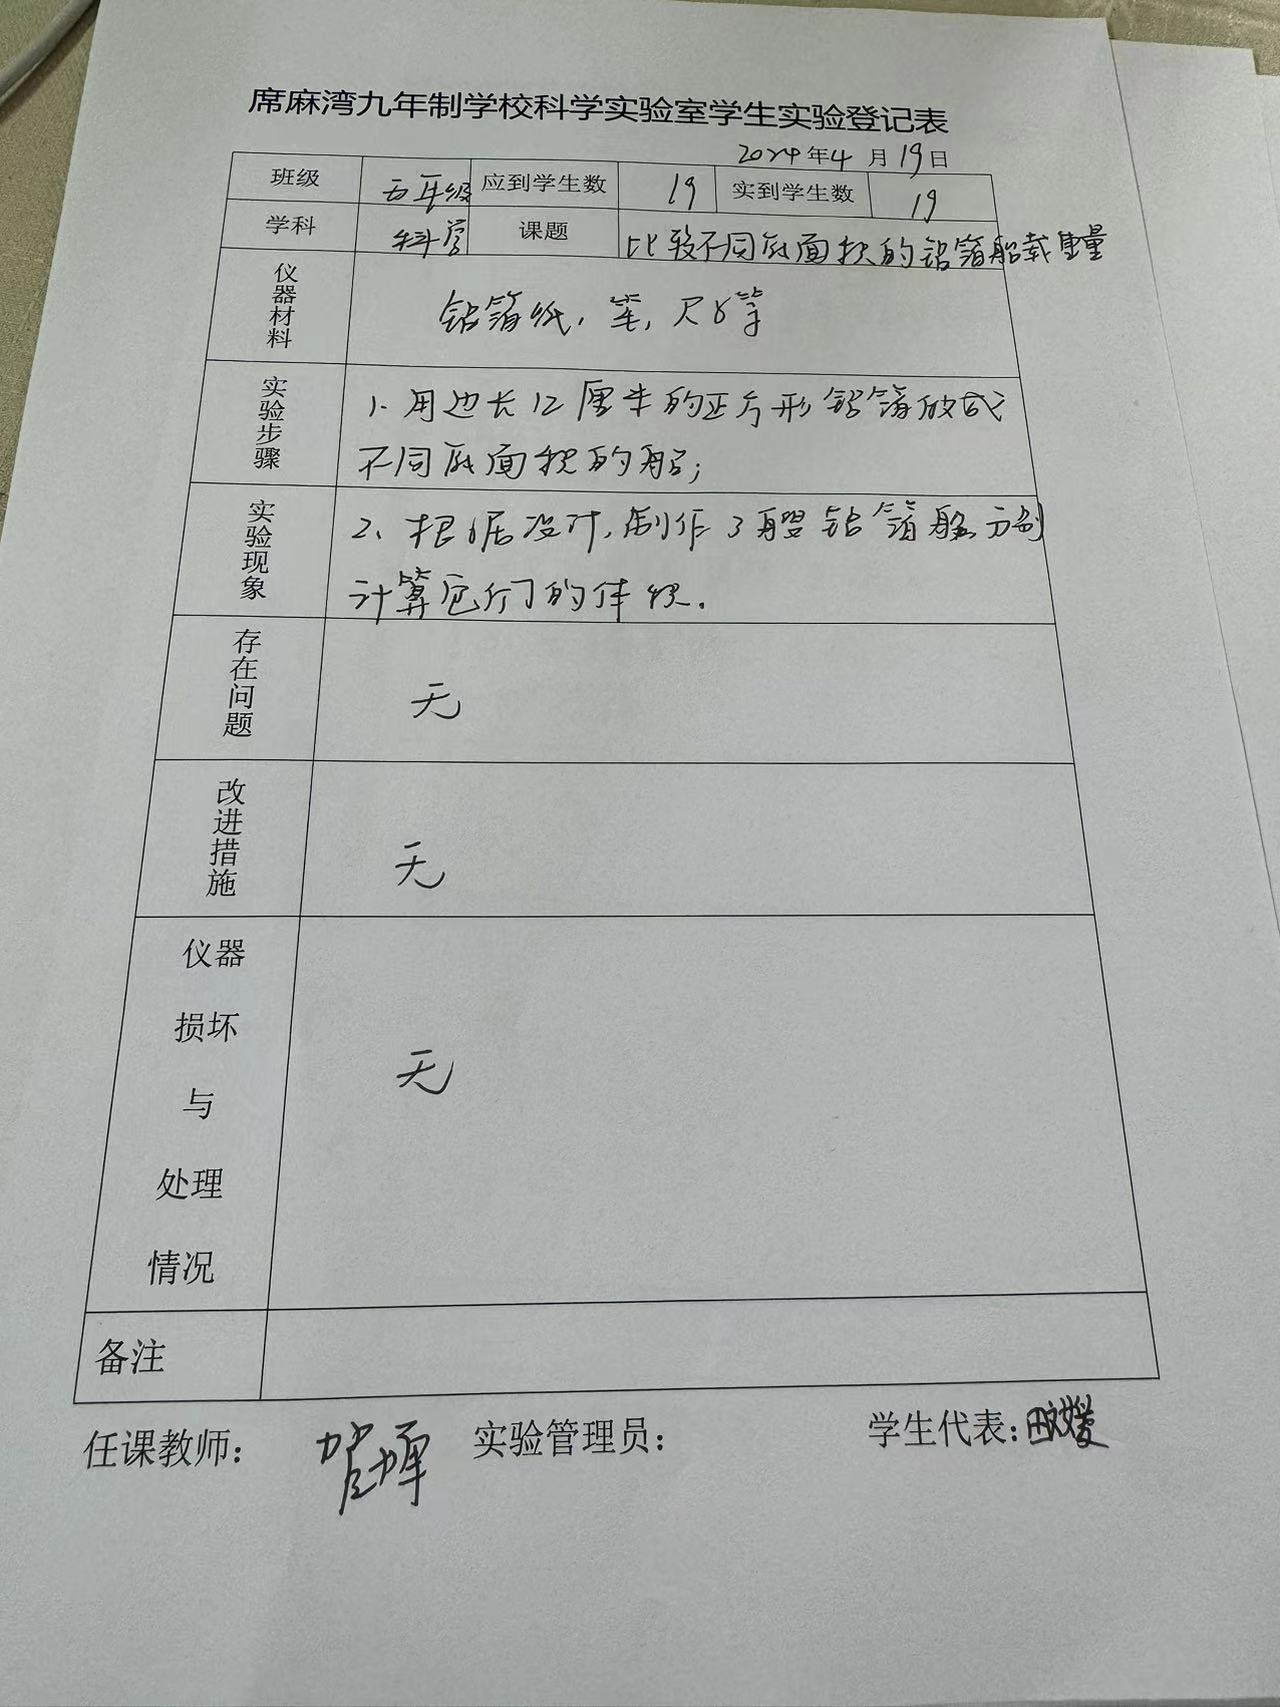 席麻湾九年制学校科学实验室学生实验登记表
2024年4月19日
班级 五年级 应到学生数 19 实到学生数 19
学科 科学 课题 比较不同底面积的铝箔船载重量
仪器材料 铝箔纸，笔，尺子等
实验步骤 1、用边长12厘米的正方形铝箔做成
不同底面积的船；
实验现象 2、根据设计，制作了 铝箔船，分别
计算它们的体积.
存在问题 无
改进措施 无
仪器
损坏
与
处理
情况
无
备注
任课教师： 实验管理员： 学生代表：